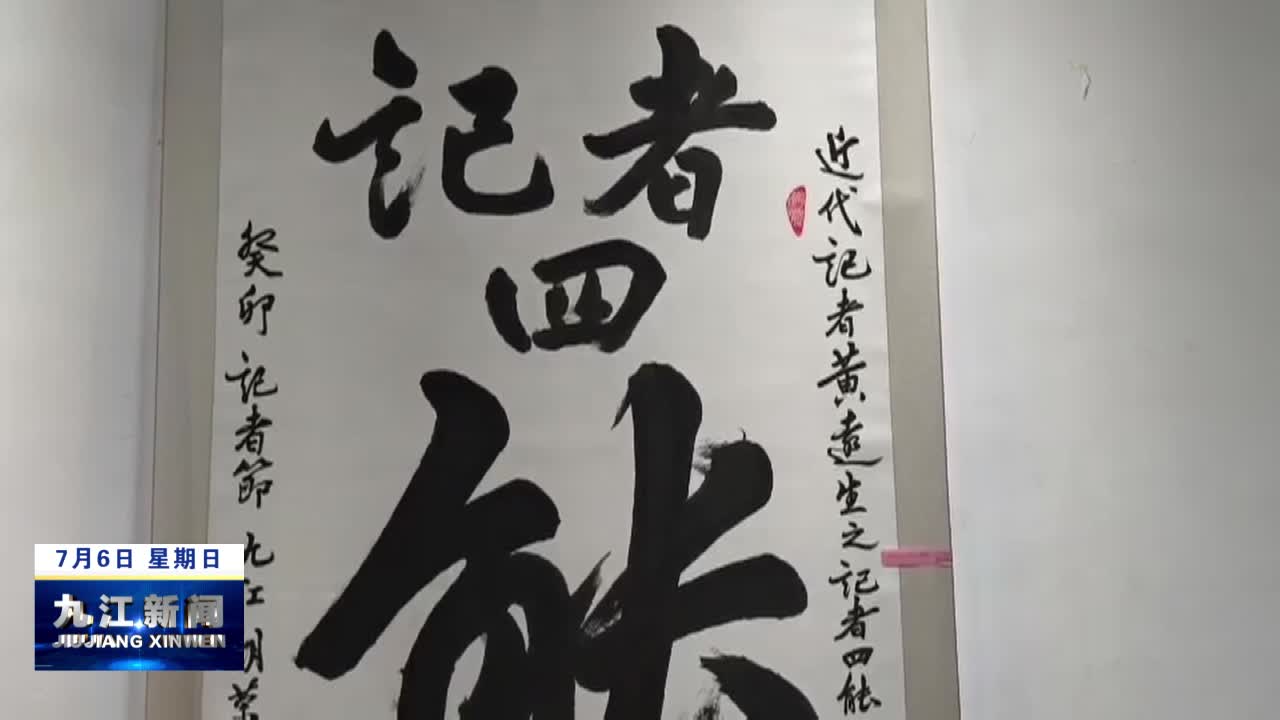 記者
四
能
近代記者黃遠生之記者四能
癸卯記者節九江胡
7月6日 星期日
九江新闻
JIUJIANG XINWEN